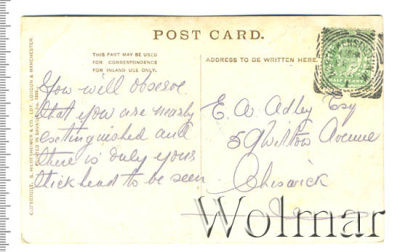 POST CARD.
THIS PART MAY BE USED
FOR CORRESPONDENCE
FOR INLAND USE ONLY.
ADDRESS TO BE WRITTEN HERE.
You will observe
that you are nearly
extinguished and
there is only your
thick head to be seen
E. A. Adley Esq
59 Wilton Avenue
Chiswick
Wolmar